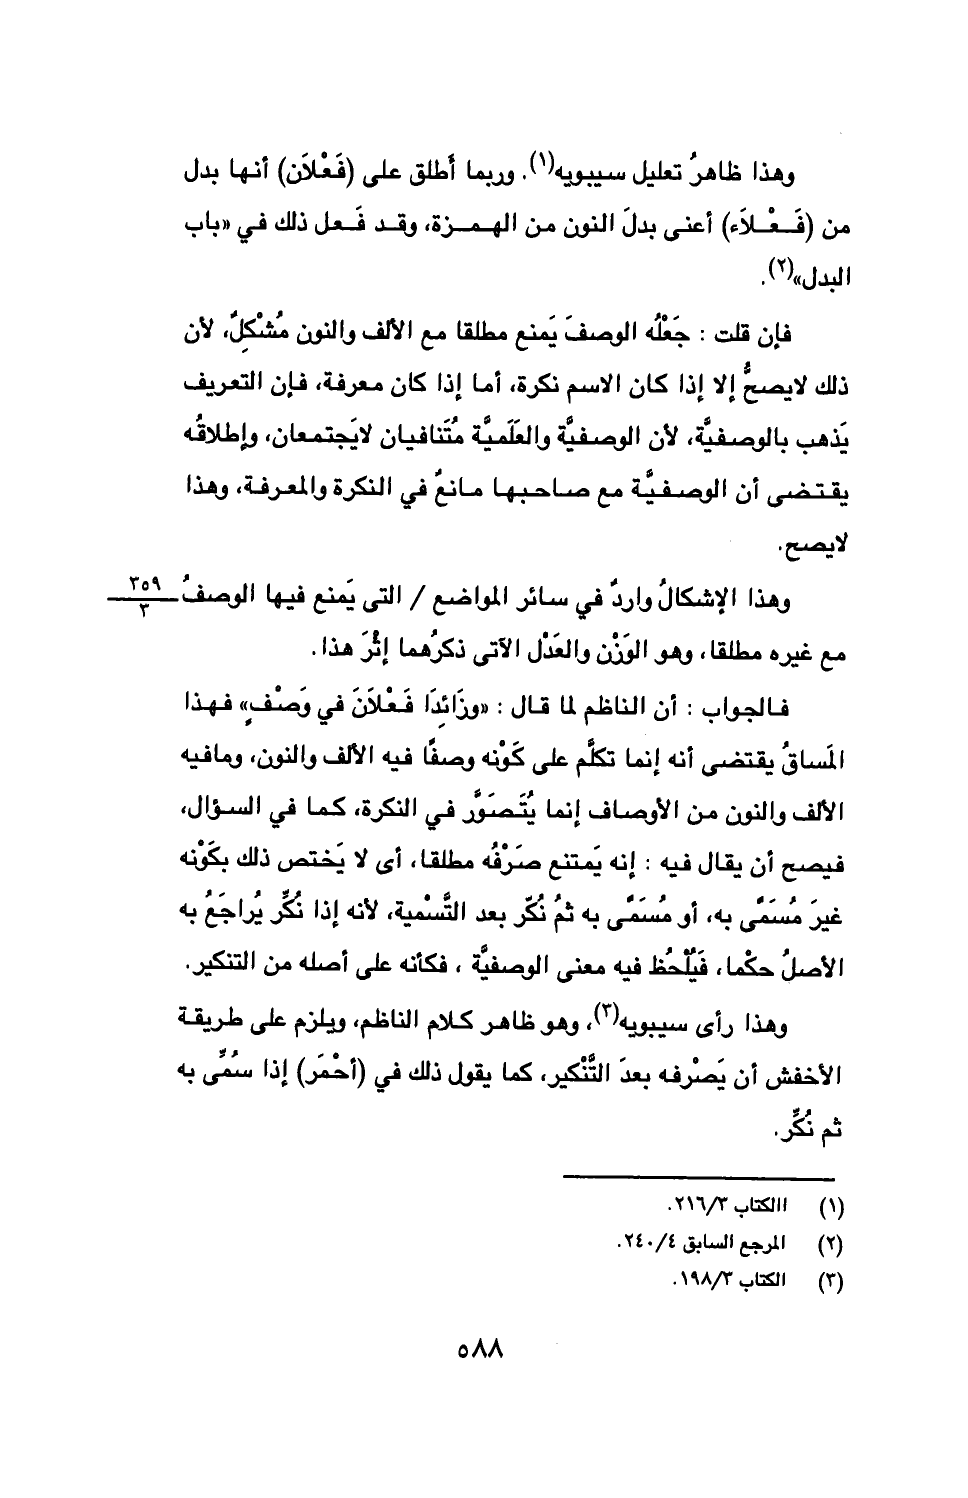 وهذا ظاهرُ تعليل سيبويه(١). وربما أَطلق على (فَعْلاَن) أنها بدل
من (فَعْلاَء) أعنى بدلَ النون من الهمزة، وقد فَعل ذلك في «باب
البدل»(٢).
فإن قلت : جَعْلُه الوصفَ يَمنع مطلقا مع الألف والنون مُشْكِلٌ، لأن
ذلك لايصحُّ إلا إذا كان الاسم نكرة، أما إذا كان معرفة، فإن التعريف
يَذهب بالوصفيَّة، لأن الوصفيَّة والعَلَميَّة مُتَنافيان لايَجتمعان، وإطلاقُه
يقتضى أن الوصفيَّة مع صاحبها مانعٌ في النكرة والمعرفة، وهذا
لايصح.
وهذا الإشكالُ واردٌ في سائر المواضع / التى يَمنع فيها الوصفُ ٣٥٩
٣
مع غيره مطلقا، وهو الوَزْن والعَدْل الآتى ذكرُهما إِثْرَ هذا.
فالجواب : أن الناظم لما قال : «وزَائِدَا فَعْلاَنَ في وَصْفٍ» فهذا
المَساقُ يقتضى أنه إنما تكلَّم على كَوْنه وصفًا فيه الألف والنون، ومافيه
الألف والنون من الأوصاف إنما يُتَصَوَّر في النكرة، كما في السؤال،
فيصح أن يقال فيه : إنه يَمتنع صَرْفُه مطلقا، أى لا يَختص ذلك بكَوْنه
غيرَ مُسَمًّى به، أو مُسَمًّى به ثمُ نُكِّر بعد التَّسْمية، لأنه إذا نُكِّر يُراجَعُ به
الأصلُ حكْما، فَيُلْحُظ فيه معنى الوصفيَّة ، فكأنه على أصله من التنكير.
وهذا رأى سيبويه(٣)، وهو ظاهر كلام الناظم، ويلزم على طريقة
الأخفش أن يَصْرفه بعدَ التَّنْكير، كما يقول ذلك في (أحْمَر) إذا سُمِّى به
ثم نُكِّر.
(١) االكتاب ٢١٦/٣.
(٢) المرجع السابق ٢٤٠/٤.
(٣) الكتاب ١٩٨/٣.
٥٨٨